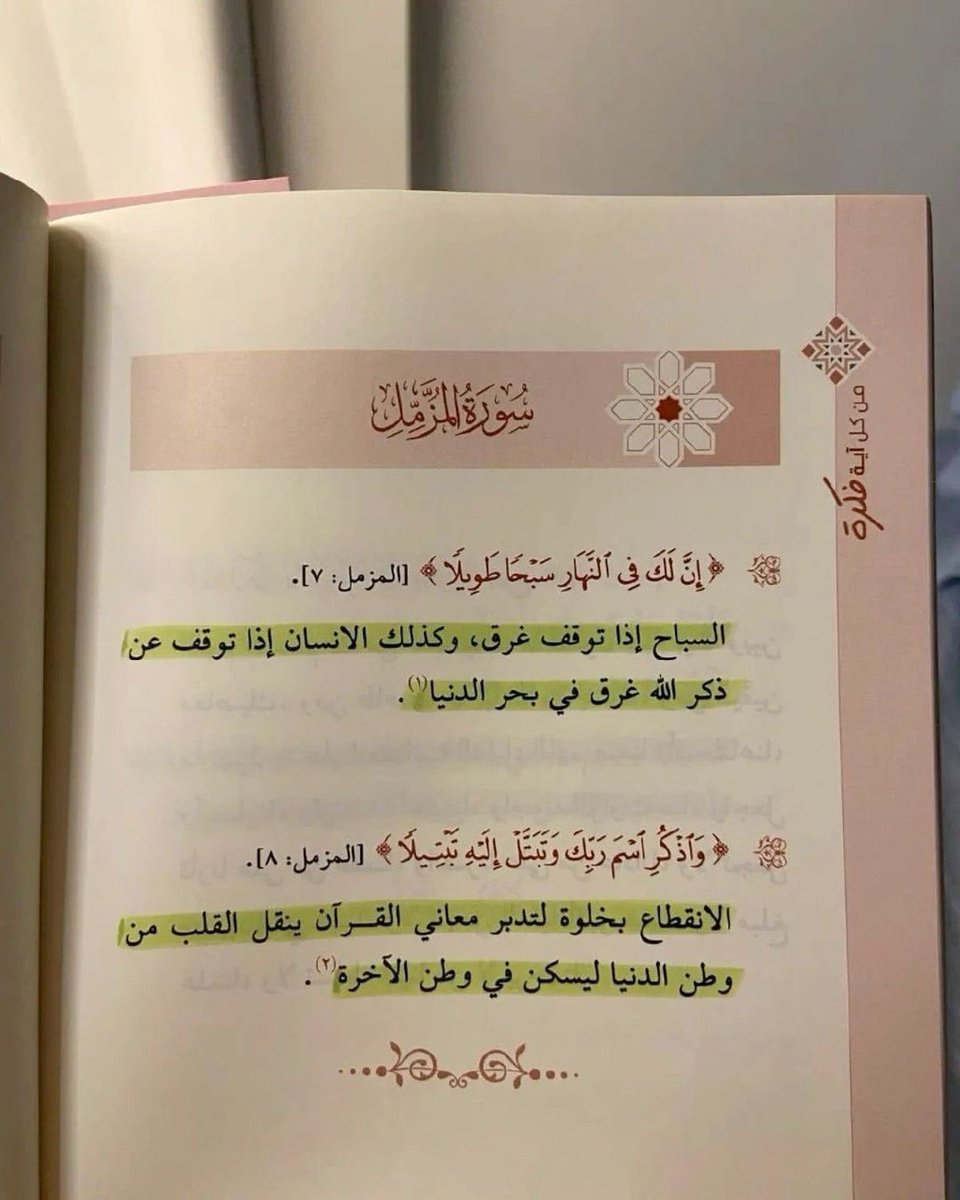 سُورَةُ المُزَّمِّل
من كل آية فكرة
﴿ إِنَّ لَكَ فِي ٱلنَّهَارِ سَبْحًا طَوِيلًا ﴾ [المزمل: ٧].
السباح إذا توقف غرق، وكذلك الانسان إذا توقف عن
ذكر الله غرق في بحر الدنيا(١).
﴿ وَٱذْكُرِ ٱسْمَ رَبِّكَ وَتَبَتَّلْ إِلَيْهِ تَبْتِيلًا ﴾ [المزمل: ٨].
الانقطاع بخلوة لتدبر معاني القـــرآن ينقل القلب من
وطن الدنيا ليسكن في وطن الآخرة(٢).